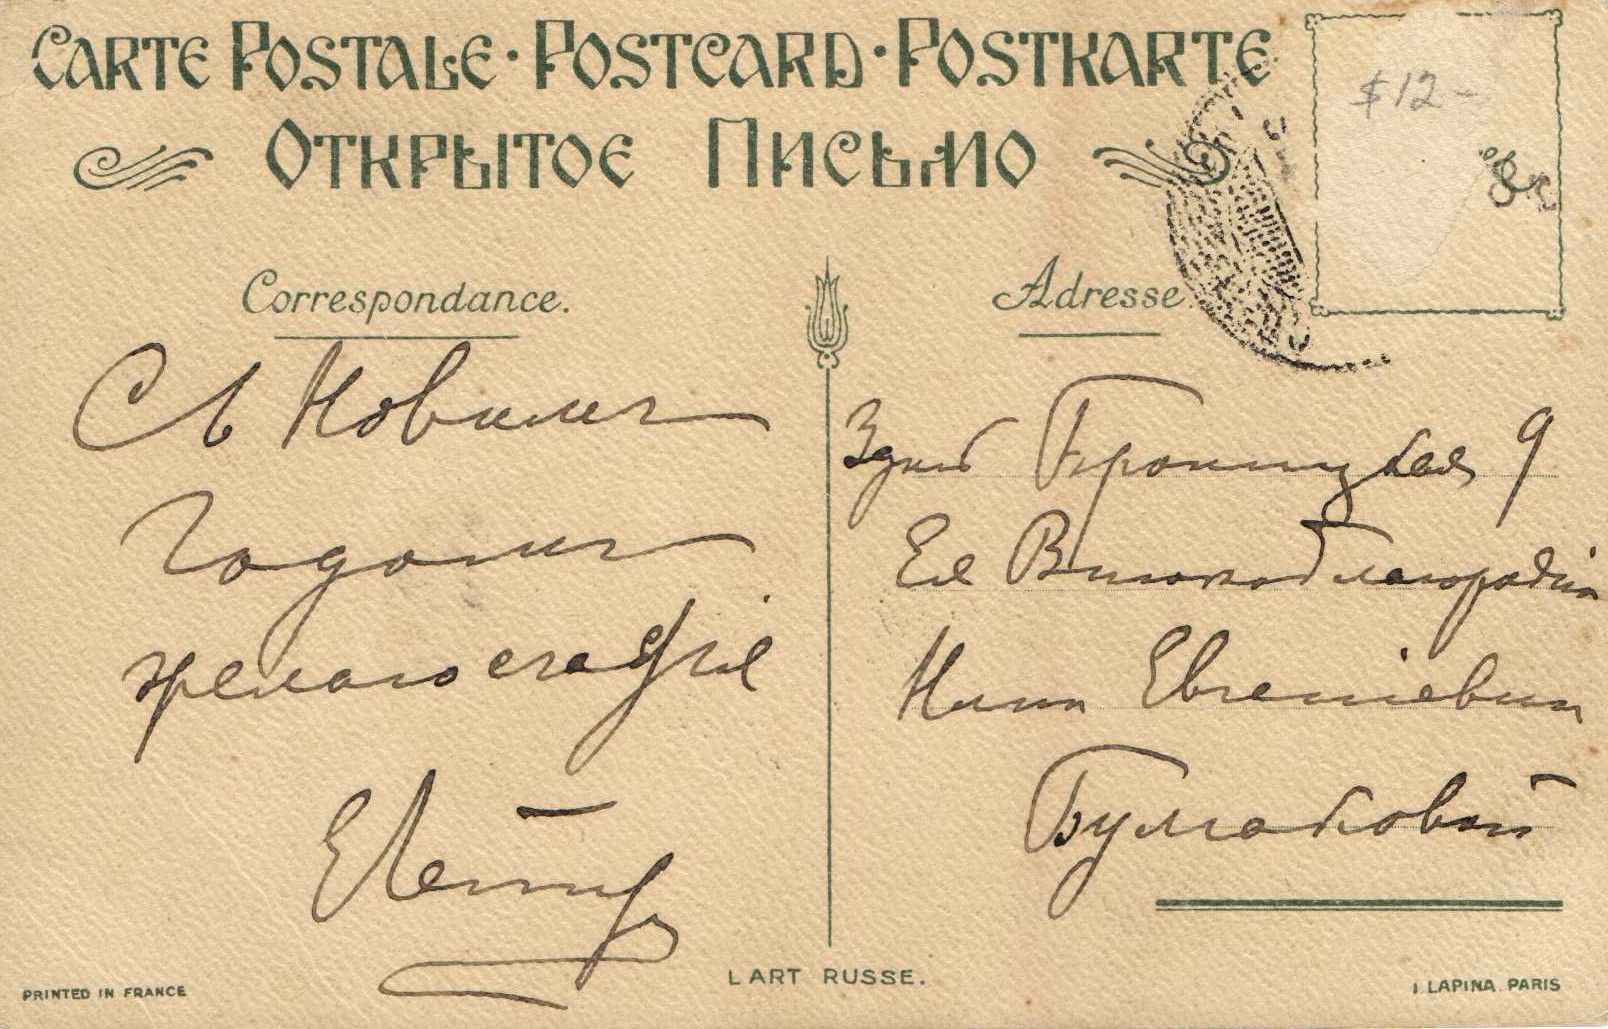 CARTE POSTALE · POSTCARD · POSTKARTE
ОТКРЫТОЕ ПИСЬМО
$12-
Correspondance.
Adresse.
Съ Новымъ
Годомъ
желаю счастія
Здѣсь Бронницкая 9
Ея Высокоблагородію
Нинѣ Евгеніевнѣ
Булмаковой
L'ART RUSSE.
PRINTED IN FRANCE
I. LAPINA. PARIS